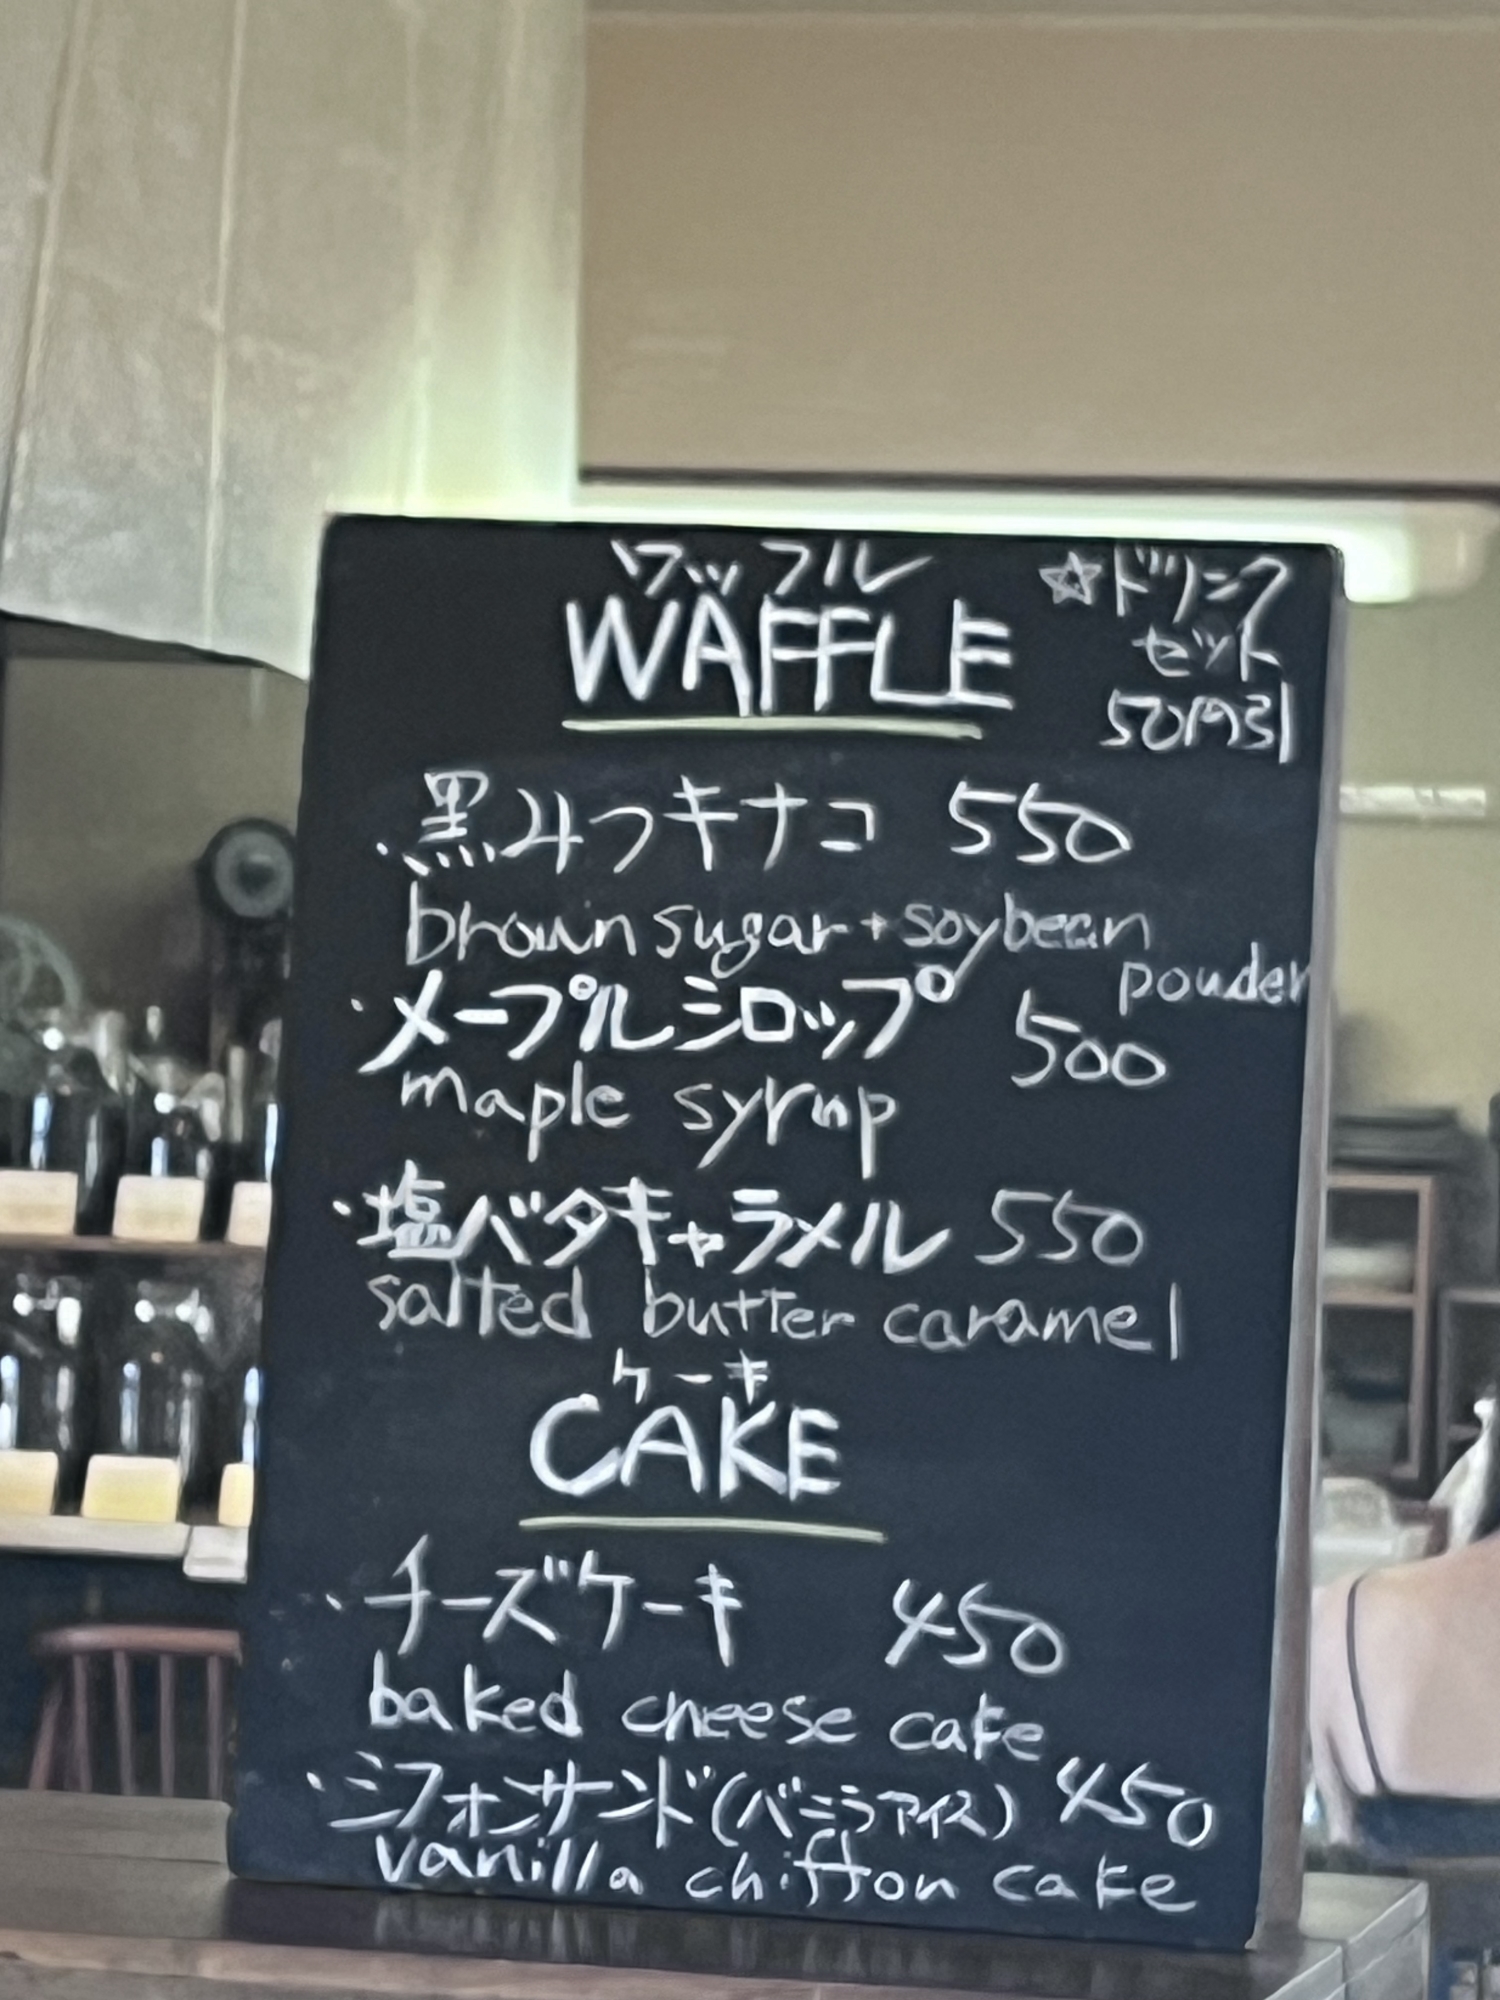 ワッフル
WAFFLE
☆ドリンク
セット
50円引
・黒みつキナコ 550
brown sugar + soybean
powder
・メープルシロップ 500
maple syrup
・塩バタキャラメル 550
salted butter caramel
ケーキ
CAKE
・チーズケーキ 450
baked cheese cake
・シフォンサンド(バニラアイス) 450
vanilla chiffon cake